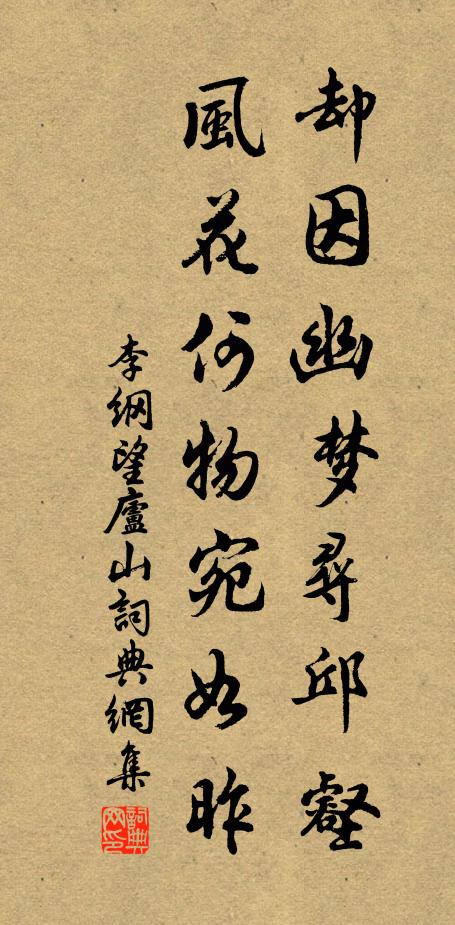 却因幽梦尋邱壑
風花何物宛如昨
李綱望廬山詞典網集
詞典网印